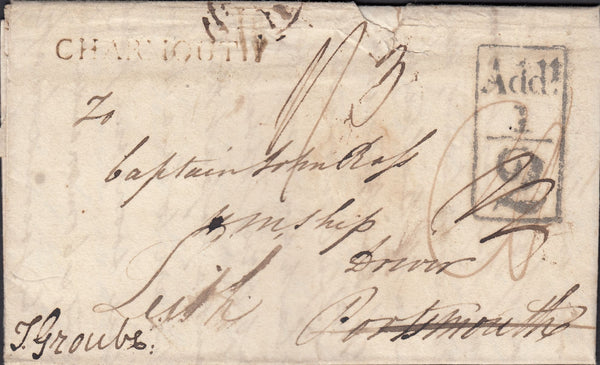 CHARMOUTH
Add!
1
2
To
Captain John Ross
HM Ship
Driver
Leith
Portsmouth
T. Groube.